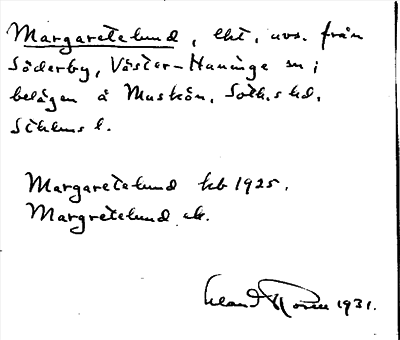 Margaretelund, lht, avs. från
Söderby, Väster-Haninge sn;
belägen å Muskön, Soth.s hd,
Sthlms l.
Margaretelund kb 1925.
Margretelund ek.
1931.